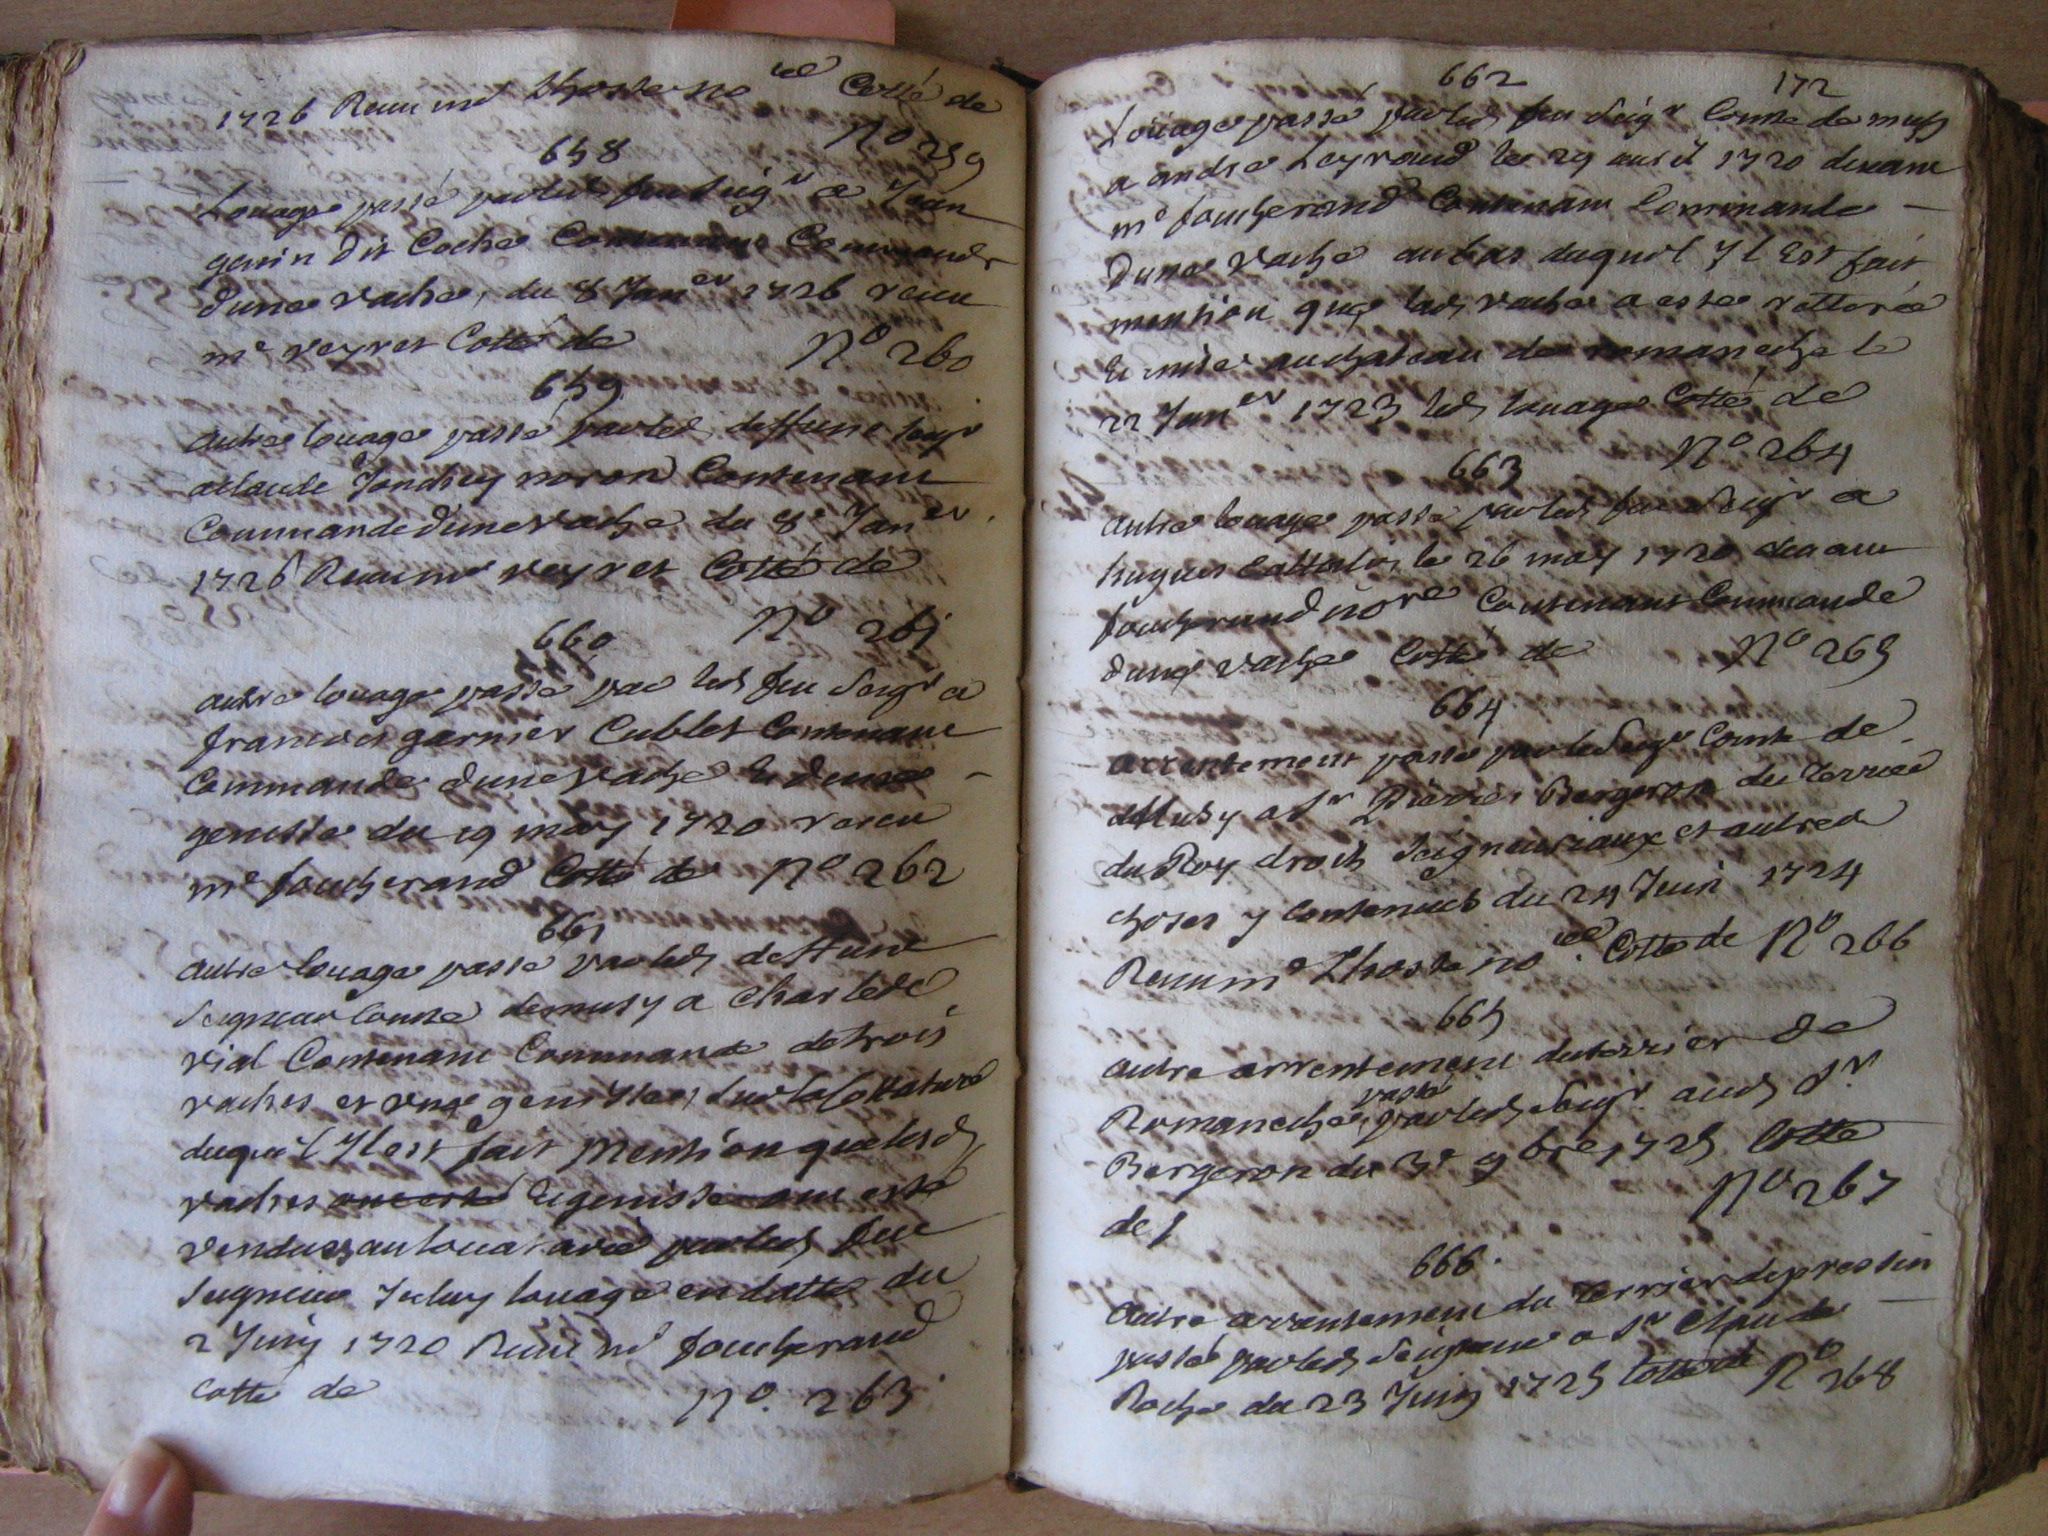 1726 Receu me Lhoste no re Cotté de
No 259
658
Louage passé par led feu seigr a Jean
genin dit Coche Contenant Commande
d'une vache, du 8 Janer 1726 receu
me veyret Cotté de No 260
659
autre louage passé par led deffunt seigr
a Claude Jondrey Contenant
Commande d'une vache du 8e Janer
1726 Receu me veyret Cotté de
No 261
660
autre louage passé par led feu Seigr a
francois garnier Cublet Contenant
Commande d'une vache Et d'une
genisse du 19 may 1720 receu
me foucherand Cotté de No 262
661
autre louage passé par led deffunt
Seigneur Comte demusy a Charle de
vial Contenant Commande de trois
vaches et une genisse, sur la Cottature
duquel Il est fait Mention que lesd
vaches ont esté Et genisse ont esté
vendues au louataire par led feu
Seigneur Iceluy louage en datte du
2 Juin 1720 Receu me foucherand
Cotté de No. 263
662 172
Loüage passé par led feu Seigr Comte de musy
a andre Leyraud le 29 auril 1720 deuant
me foucherand Contenant Commande
d'une vache au bas duquel Il Est fait
mention que lad vache a esté rettirée
Et mise au chateau de romaneche le
22 Janer 1723 led louage Cotté de
No. 264
663
autre louage passé par led feu Seigr a
hugues le 26 may 1720 deuant
foucherand nore Contenant Commande
d'une vache Cotté de No 265
664
arrentement passé par le Seigr Comte de
Musy a Sr Pierre Bergeron du terrier
du Roy droits Seigneuriaux et autres
choses y Contenues du 24 Juin 1724
Receu me Lhoste no re. Cotté de No 266
665
autre arrentement du terrier de
Romaneche passé par led Seigr aud Sr
Bergeron du 3e 9bre 1725 Cotté
No 267
de /
666.
autre arrentement du terrier de pressin
passé par led Seigneur a Sr Claude
Roche du 23 Juin 1725 Cotté de No 268